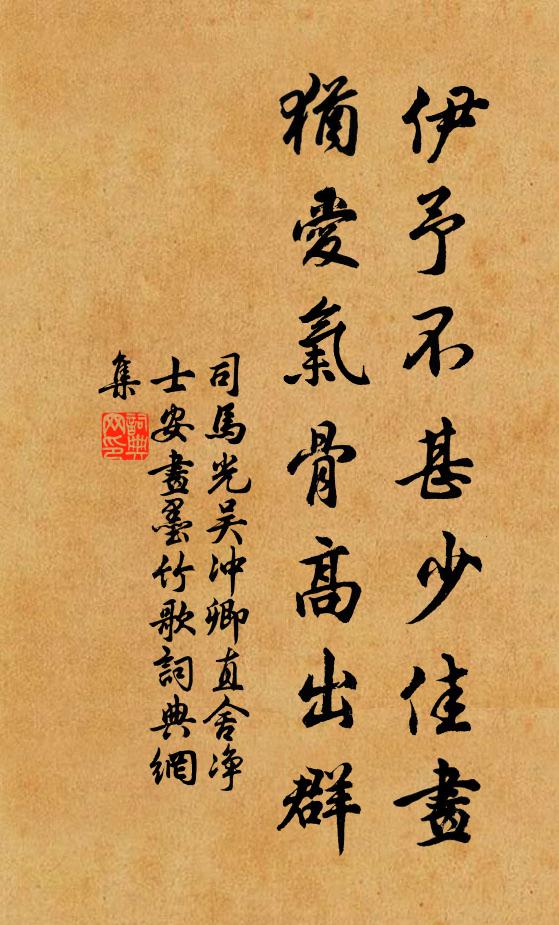 伊予不甚少佳畫
猶愛氣骨高出群
司馬光吳沖卿直舍淨
士安畫墨竹歌詞典網
集
詞典
网印